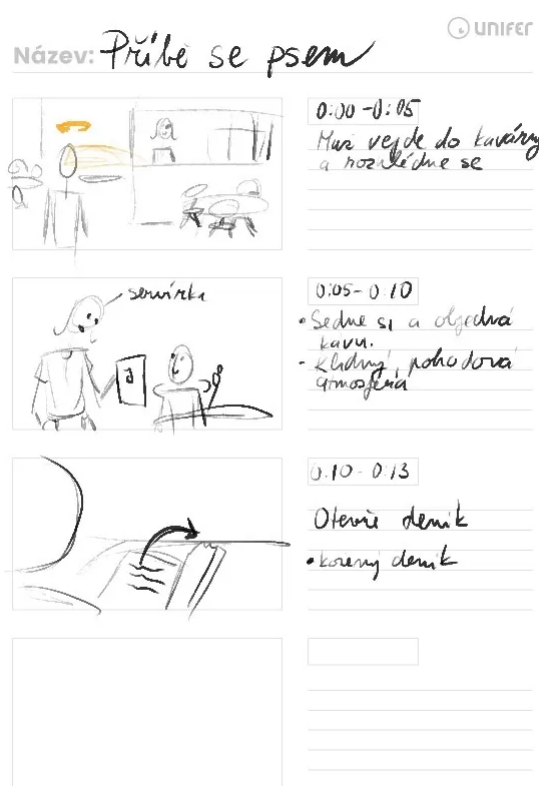 UNIFER
Název: Příbě se psem
0:00 - 0:05
Muž vejde do kavárny
a rozhlédne se
servírka
0:05 - 0:10
• Sedne si a objedná
kavu.
- Klidný, pohodová
atmosféra
0:10 - 0:13
Otevře denik
• kožený denik